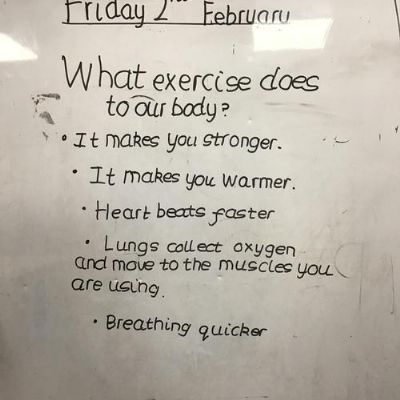 Friday 2nd February
What exercise does
to our body?
• It makes you stronger.
• It makes you warmer.
• Heart beats faster
• Lungs collect oxygen
and move to the muscles you
are using.
• Breathing quicker